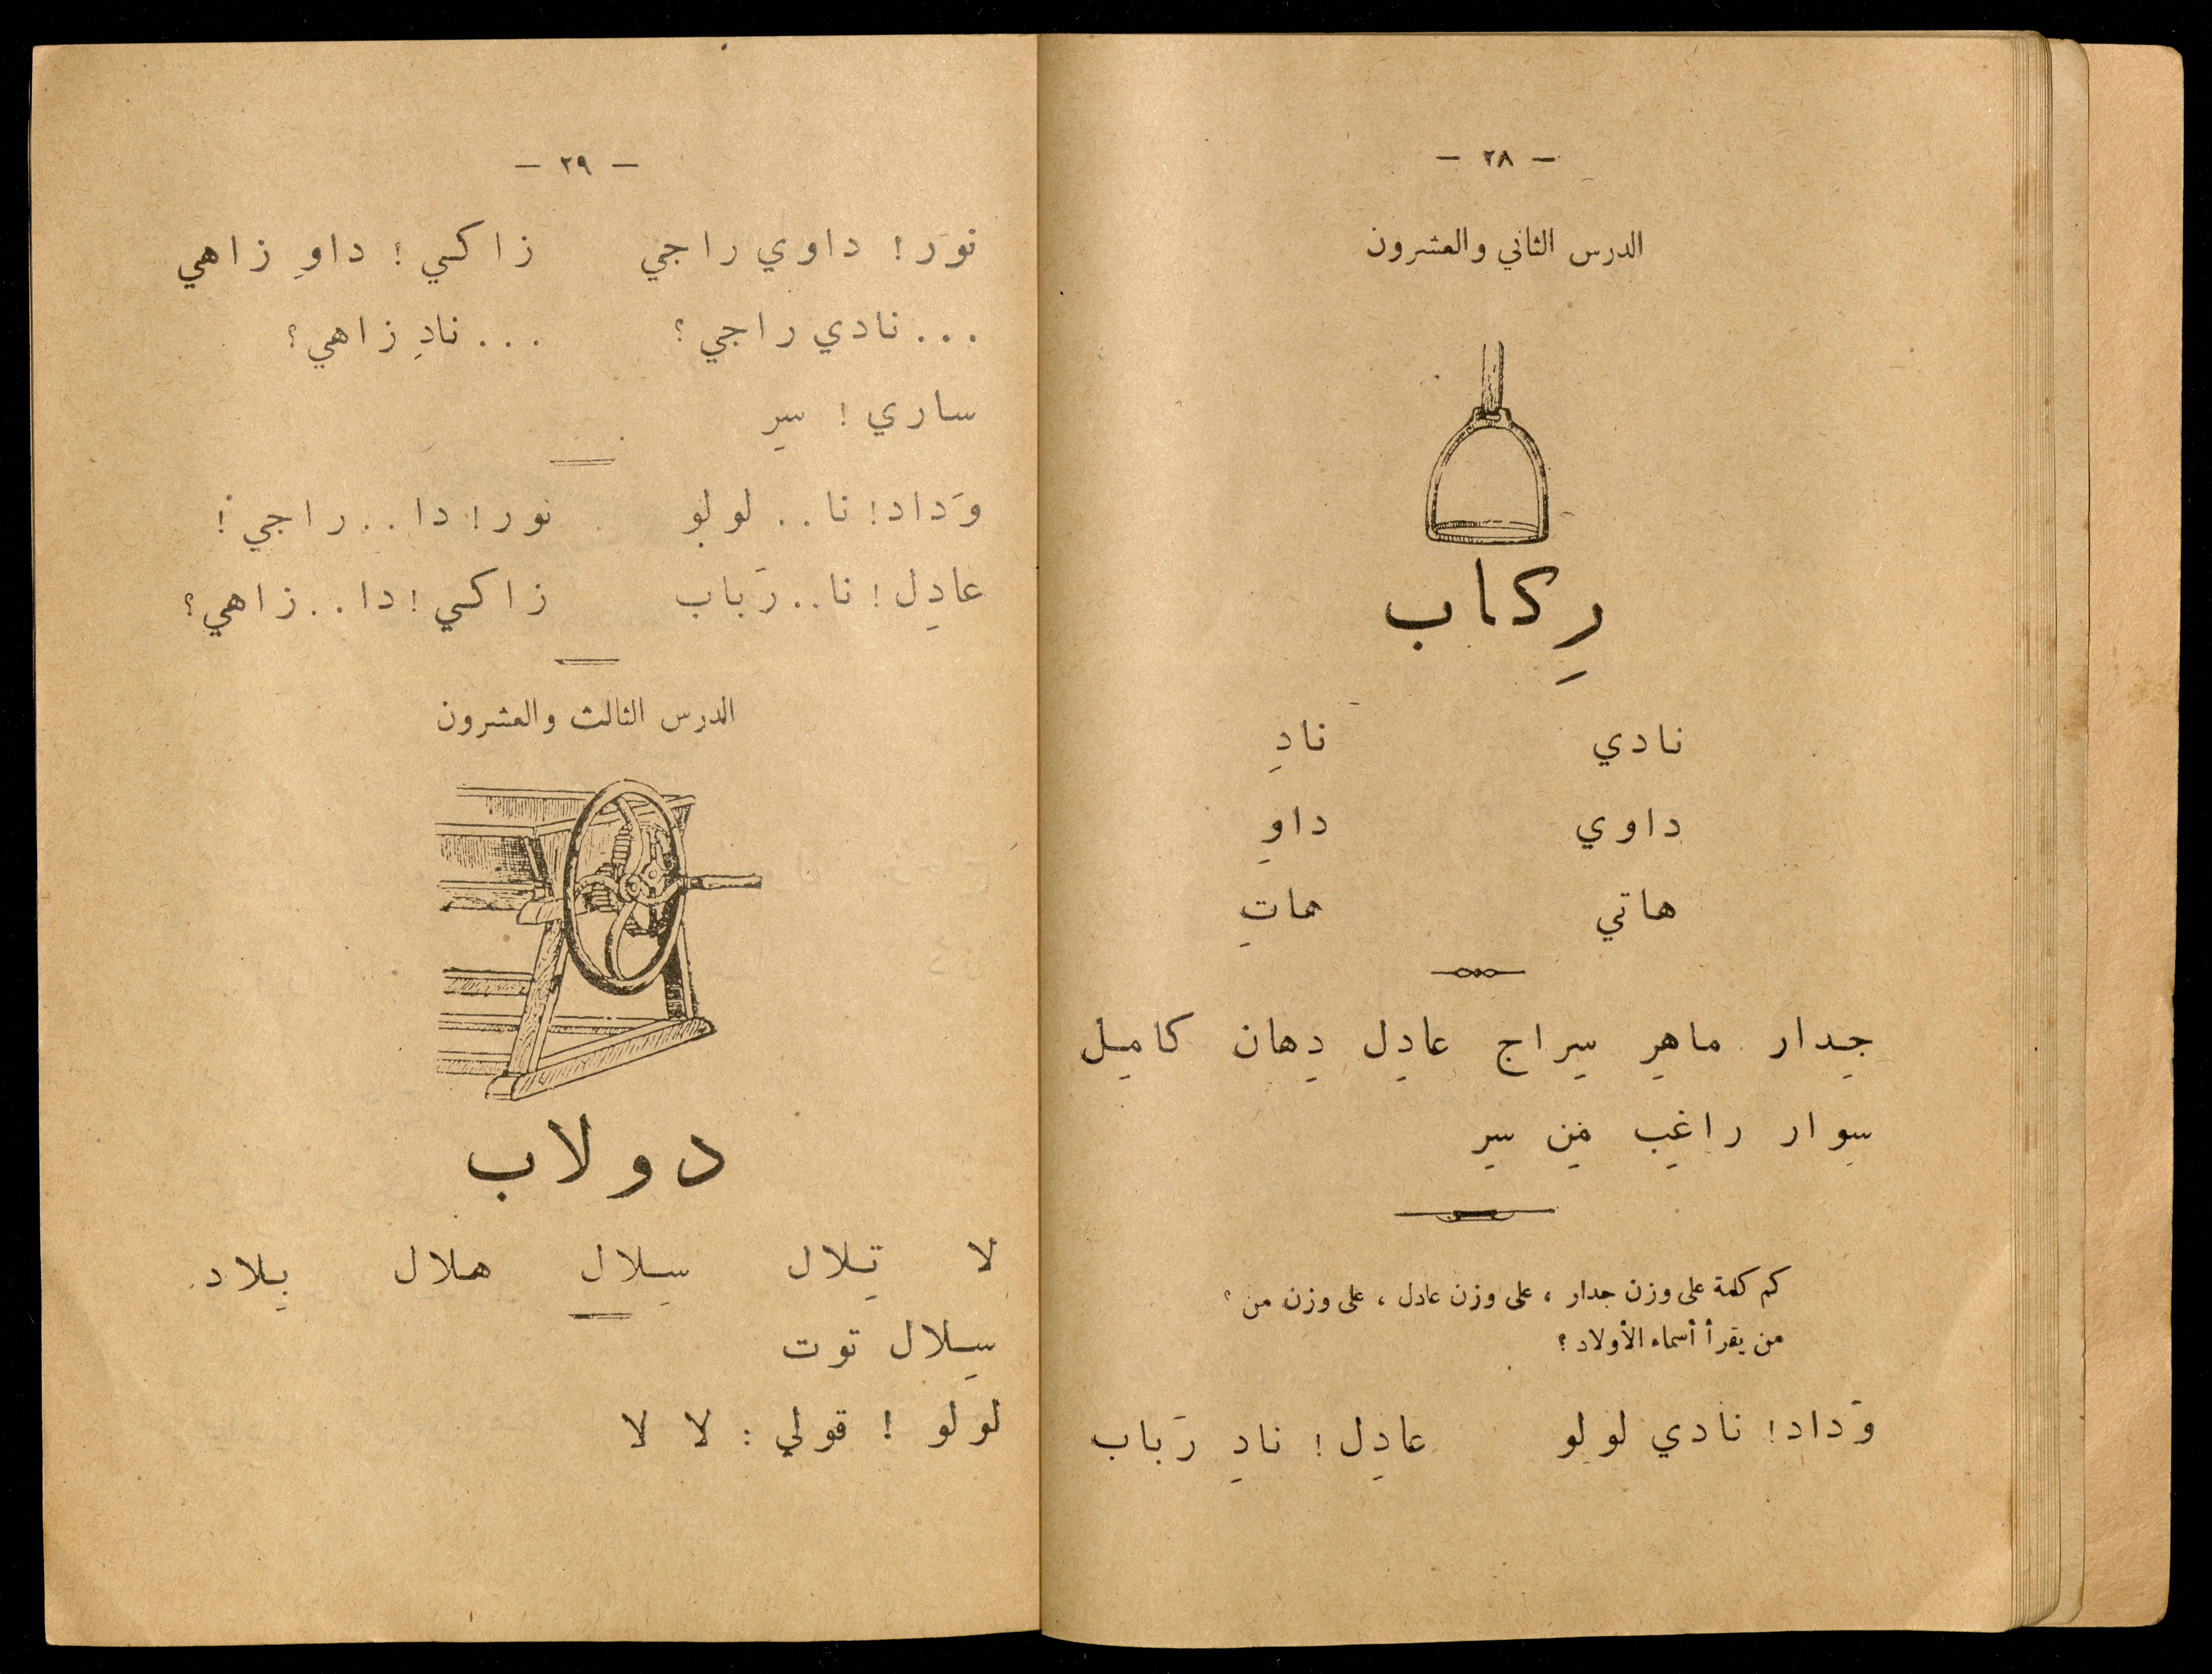 — ٢٨ —
الدرس الثاني والعشرون
رِكاب
نادي نادِ
داوي داوِ
هاتي هاتِ
جِدار ماهِر سِراج عادِل دِهان كامِل
سِوار راغِب مِن سِر
كم كلمة على وزن جدار ، على وزن عادل ، على وزن من ؟
من يقرأ أسماء الأولاد ؟
وَداد ! نادي لولو عادِل ! نادِ رَباب
— ٢٩ —
نور ! داوي راجي زاكي ! داوِ زاهي
... نادي راجي ؟ ... نادِ زاهي ؟
ساري ! سِر
وَداد ! نا .. لولو نور ! دا .. راجي !
عادِل ! نا .. رَباب زاكي ! دا .. زاهي ؟
الدرس الثالث والعشرون
دولاب
لا تِلال سِلال هلال بِلاد
سِلال توت
لولو ! قولي : لا لا